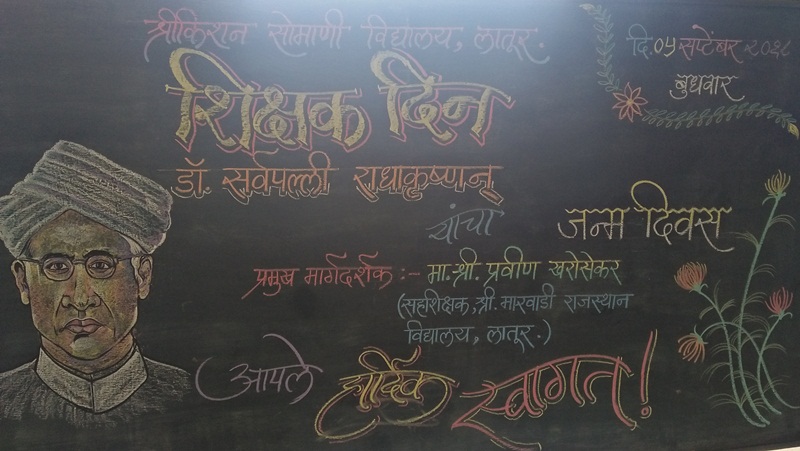 श्रीकिशन सोमाणी विद्यालय, लातूर.
दि. ०५ सप्टेंबर २०१८
बुधवार
शिक्षक दिन
डॉ. सर्वपल्ली राधाकृष्णन्
यांचा जन्म दिवस
प्रमुख मार्गदर्शक :- मा. श्री. प्रवीण खरोसेकर
(सहशिक्षक, श्री. मारवाडी राजस्थान
विद्यालय, लातूर.)
आपले हार्दिक स्वागत!